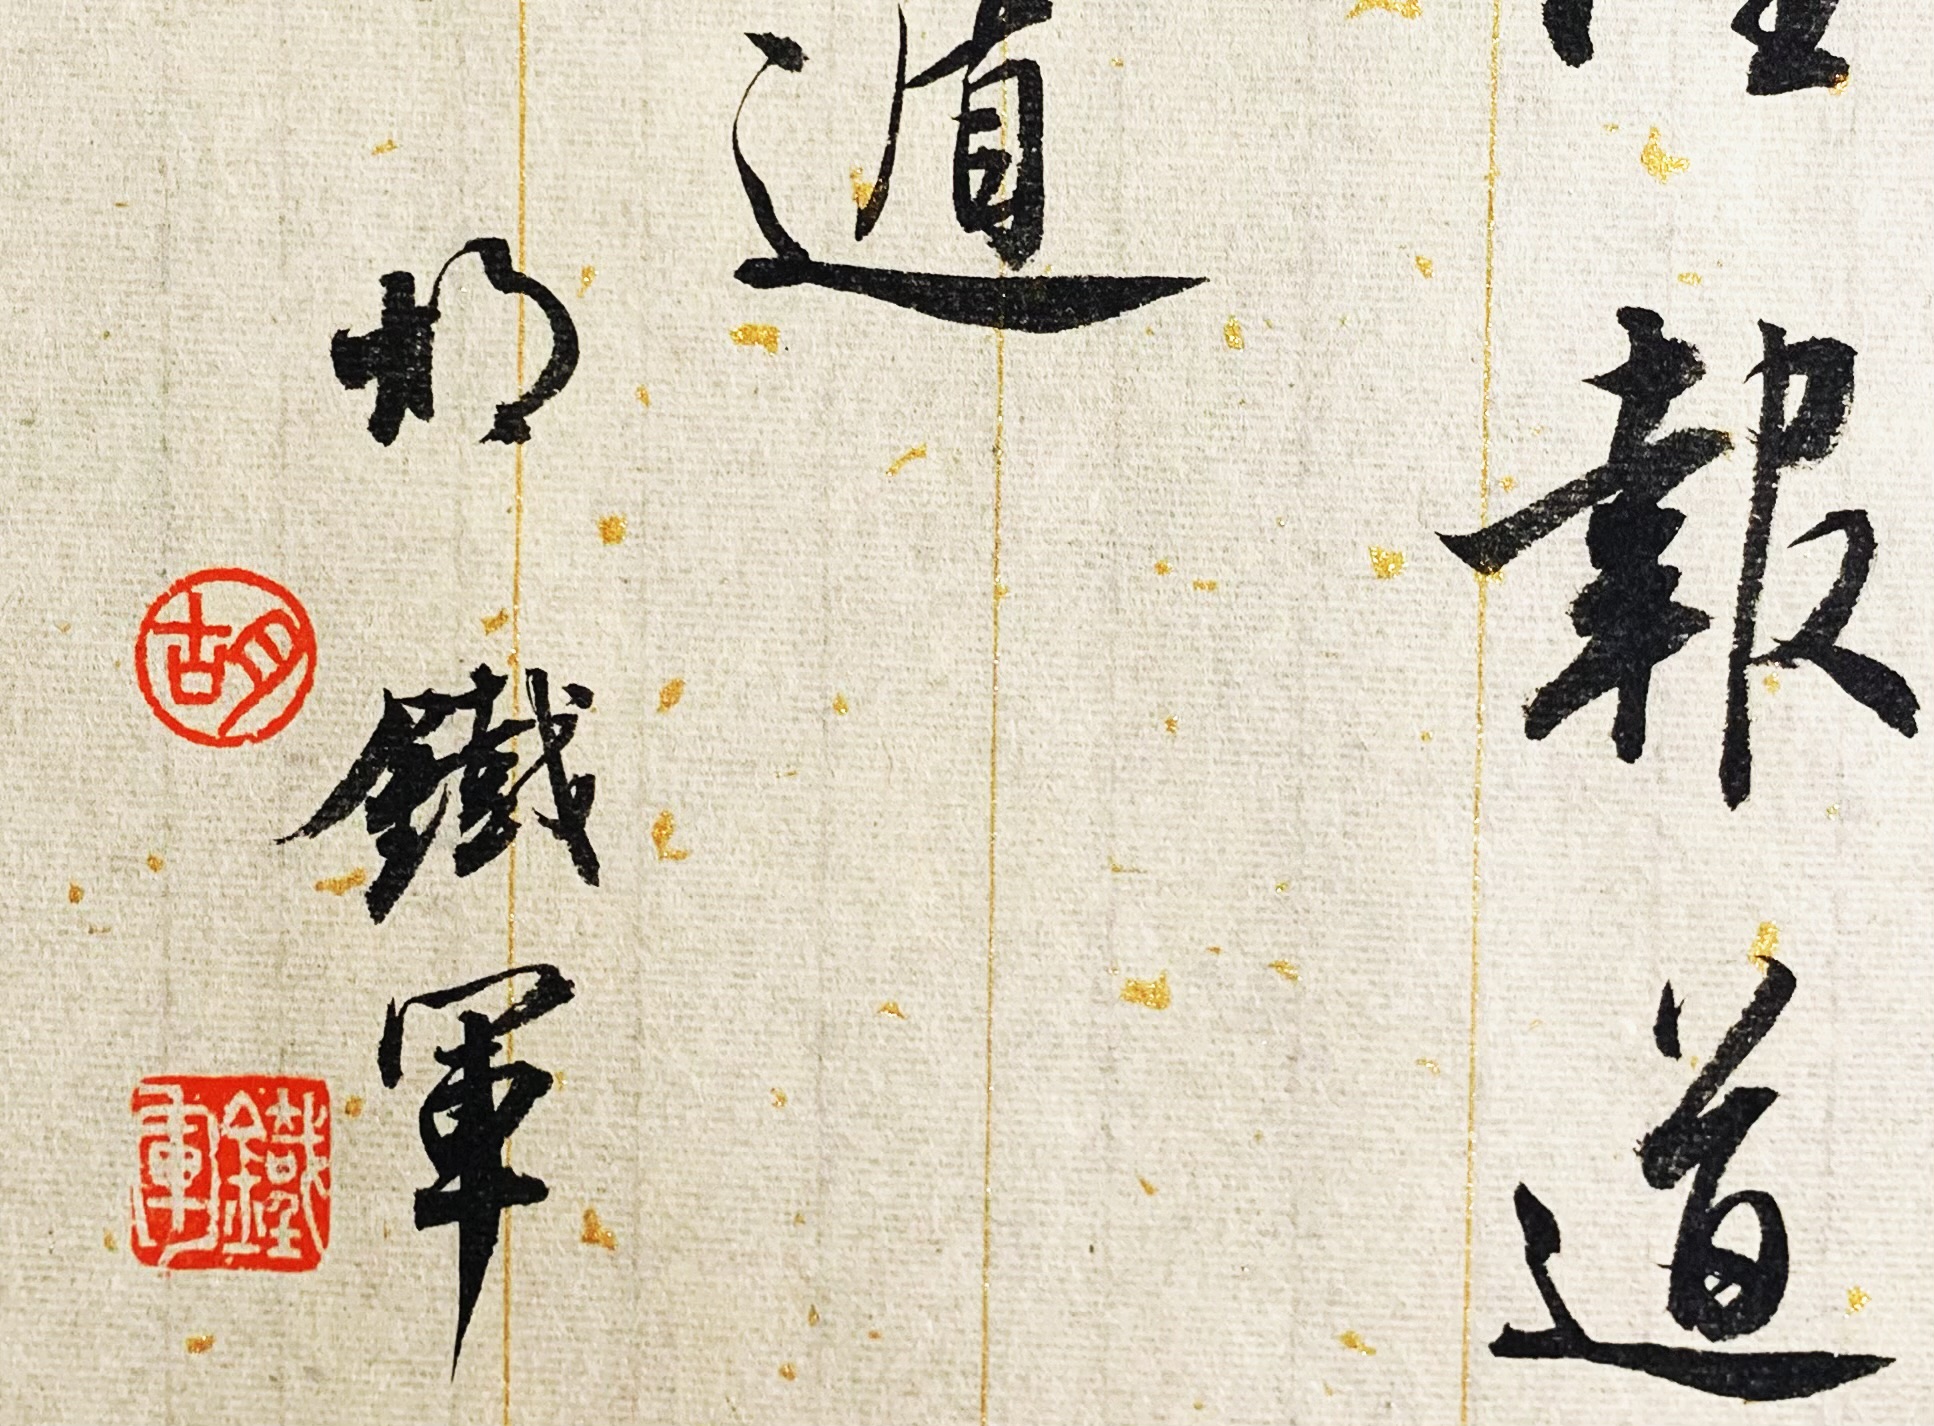 報道
遁
胡鐵軍
胡
鐵軍